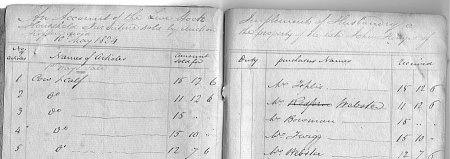 An Account of the Live Stock
Household Furniture sold by auction
10 May 1834
No Articles Names of Articles Amount sold for
1 Cow & Calf 15 17 6
2 Do 11 12 6
3 Do 15 " "
4 Do 15 10 "
5 Do 12 7 6
Implements of Husbandry &
the property of the late John
Duty purchasers Names Received
Mr 15 12 6
Mr Webster 11 12 6
Mr Bowman 15 " "
Mr 15 10 "
Mr Webster 12 7 6